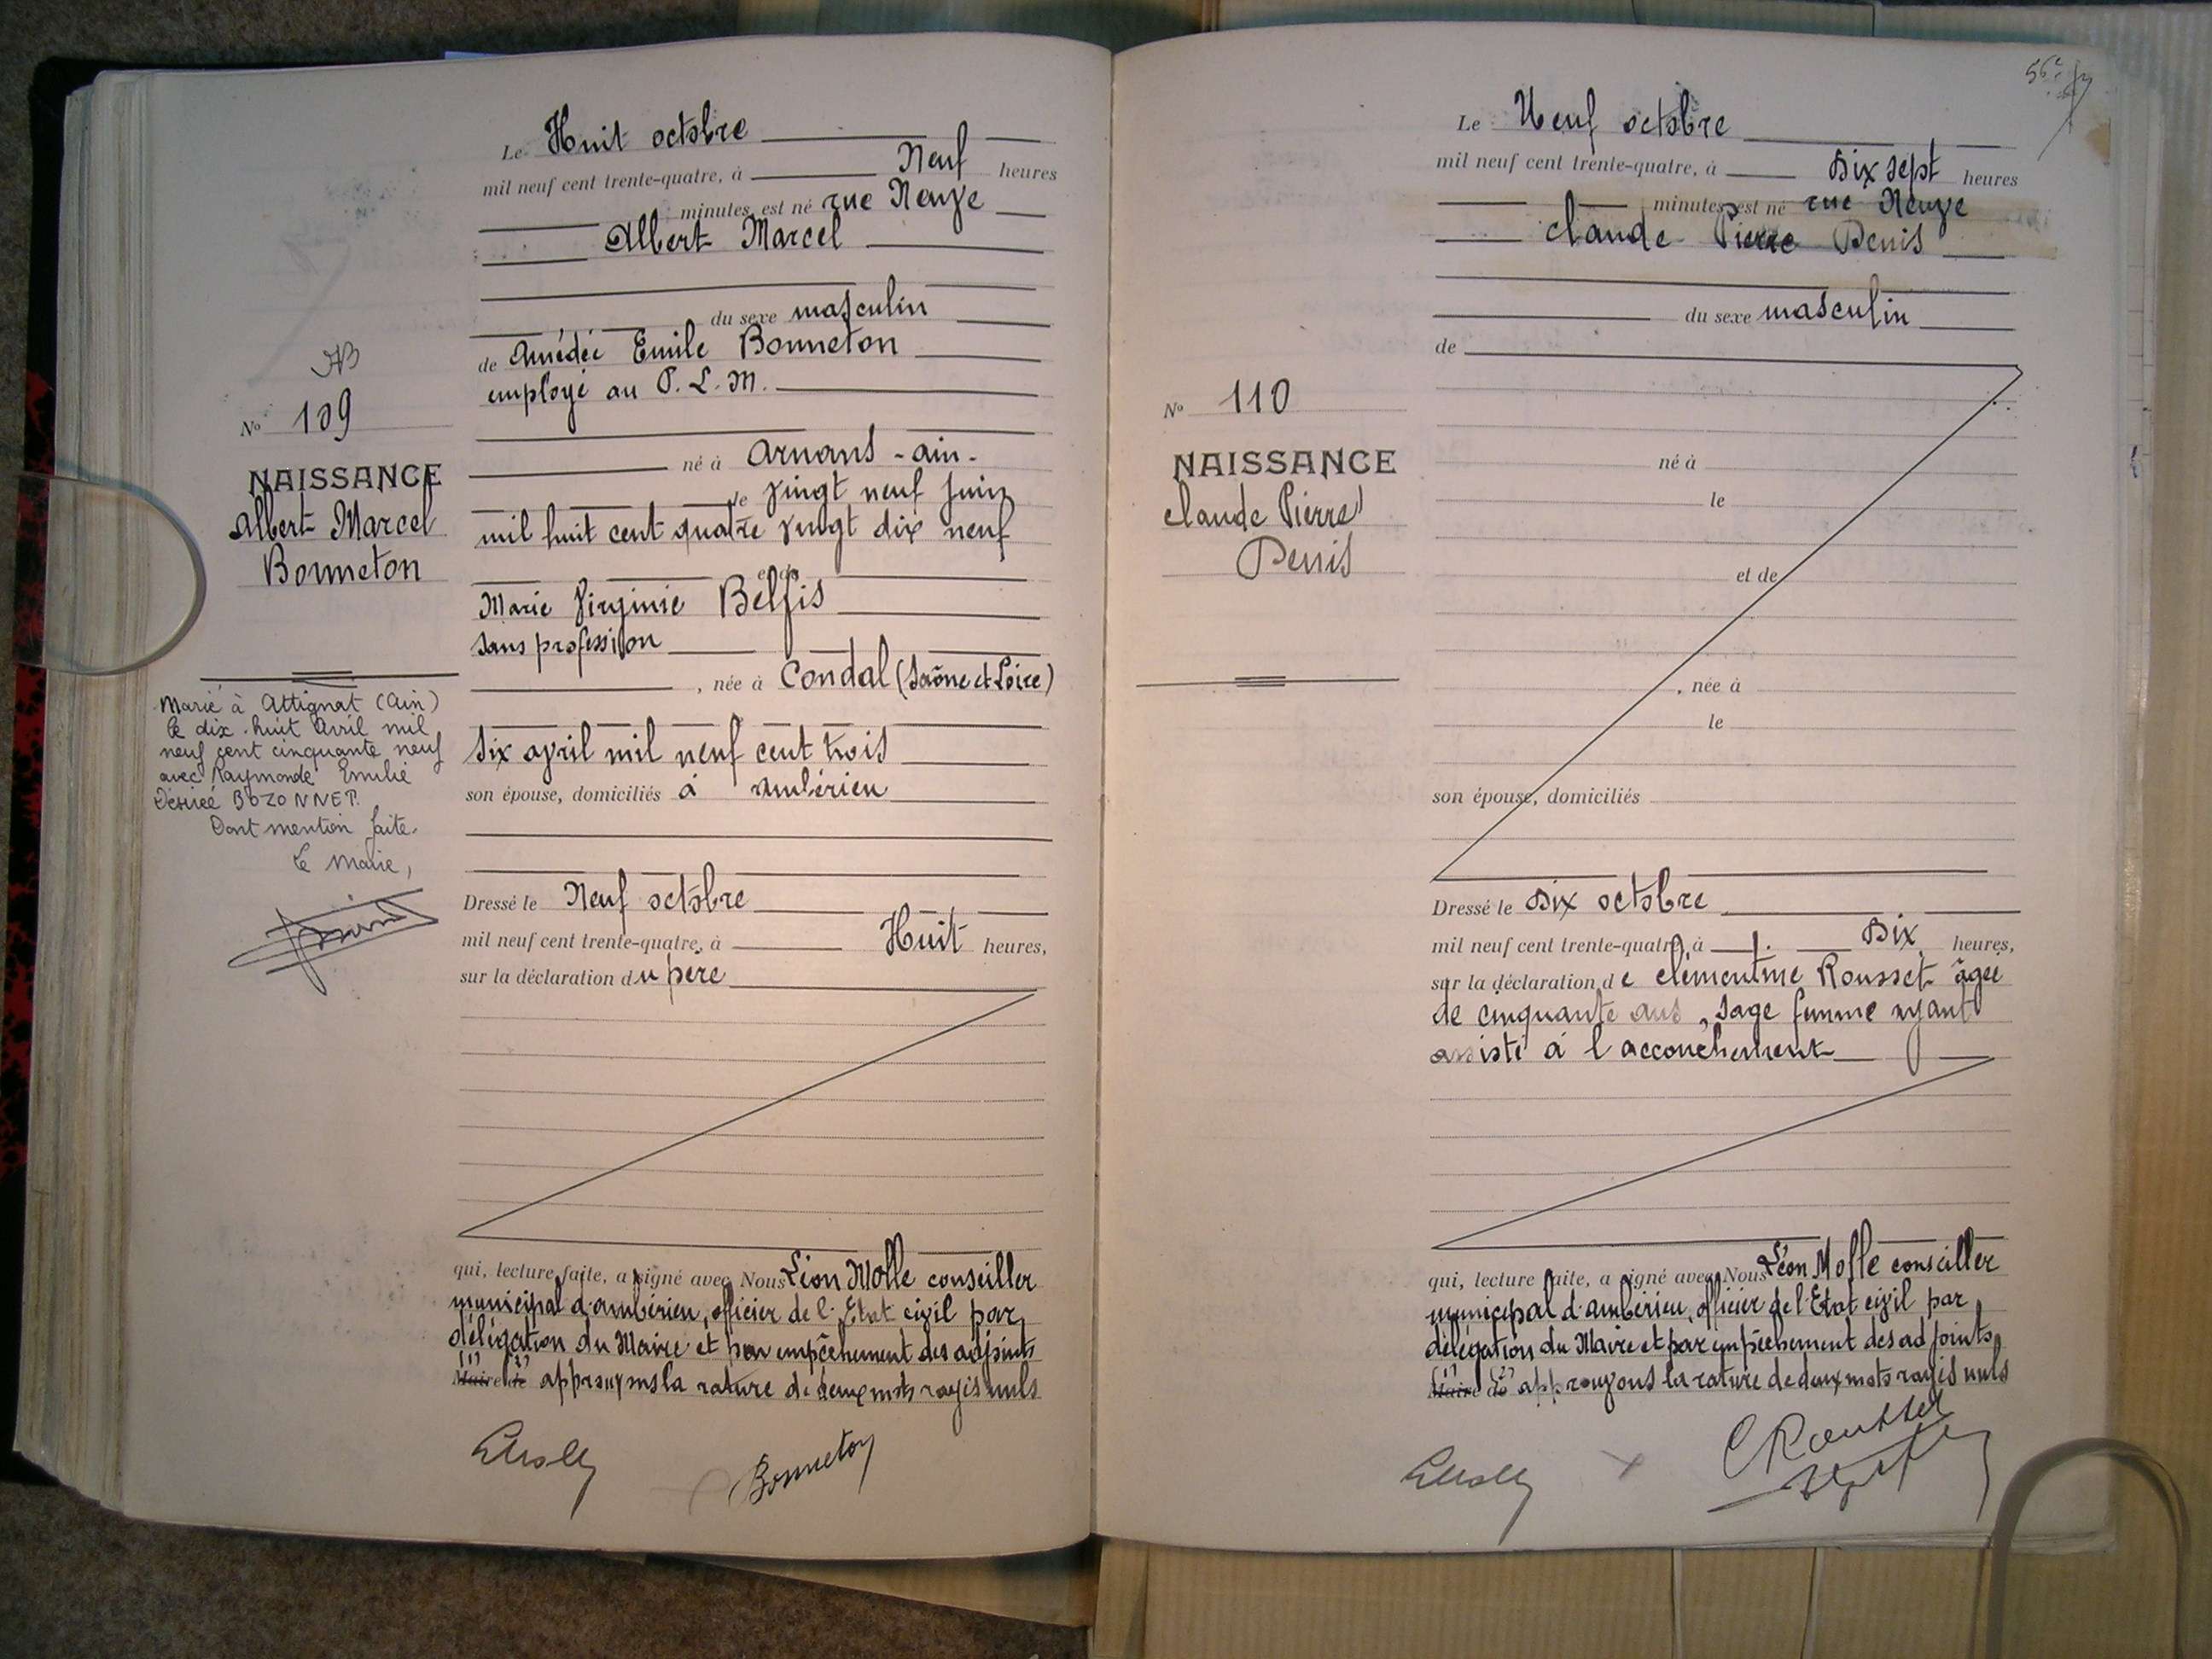 Le Huit octobre
mil neuf cent trente-quatre, à Neuf heures
minutes est né rue Neuve
Albert Marcel
du sexe masculin
de Amédée Emile Bonneton
employé au P. L. M.
né à Arnans - ain -
le vingt neuf juin
mil huit cent quatre vingt dix neuf
et de
Marie Virginie Belfis
sans profession
, née à Condal (Saône et Loire)
six avril mil neuf cent trois
son épouse, domiciliés à Ambérieu
Dressé le Neuf octobre
mil neuf cent trente-quatre, à Huit heures,
sur la déclaration du père
qui, lecture faite, a signé avec Nous Léon Molle conseiller
municipal d'ambérieu, officier de l'Etat civil par
délégation du Maire et par empêchement des adjoints
(1) (2)
Maire de approuvons la rature de deux mots rayés nuls
LMolle
Bonneton
AB
No 109
NAISSANCE
Albert Marcel
Bonneton
Marié à Attignat (Ain)
le dix-huit Avril mil
neuf cent cinquante neuf
avec Raymonde Emilie
Désirée BOZONNET.
Dont mention faite.
Le Maire,
56e
Le Neuf octobre
mil neuf cent trente-quatre, à Dix sept heures
minutes est né rue Neuve
Claude Pierre Denis
du sexe masculin
de
né à
le
et de
, née à
le
son épouse, domiciliés
Dressé le Dix octobre
mil neuf cent trente-quatre, à Dix heures,
sur la déclaration de Clémentine Rousset âgée
de cinquante ans, sage femme ayant
assisté à l'accouchement
qui, lecture faite, a signé avec Nous Léon Molle conseiller
municipal d'ambérieu, officier de l'Etat civil par
délégation du Maire et par empêchement des adjoints
(1) (2)
Maire de approuvons la rature de deux mots rayés nuls
LMolle
C Rousset
No 110
NAISSANCE
Claude Pierre
Denis